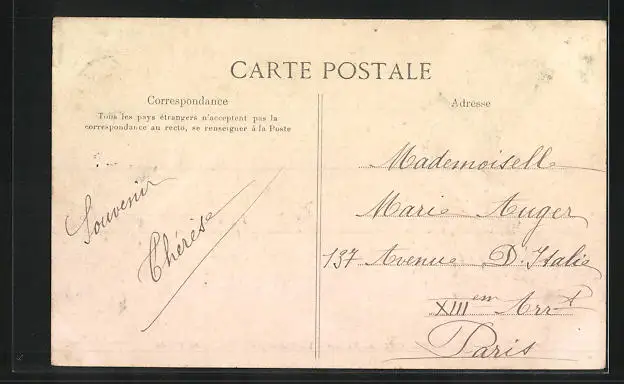 CARTE POSTALE
Correspondance
Tous les pays étrangers n'acceptent pas la
correspondance au recto, se renseigner à la Poste
Souvenir
Thérèse
Adresse
Mademoiselle
Marie Auger
137 Avenue D'Italie
XIII em Arrt
Paris